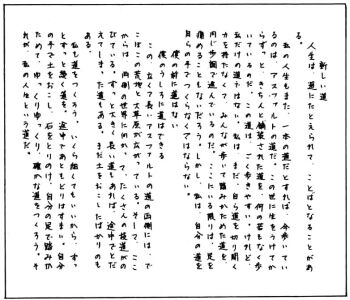 新しい道
人生は、道にたとえられて、ことばとなることがあ
る。
私の人生もまた、一本の道だとすれば、今歩いてい
るのは、アスファルトの道だ。この世に生をうけてか
らずっと、きちんと舗装された道を、何の苦もなく歩
いているのだ。この道は、ごく歩きやすい。けれど、
私だけの道ではない。私は、まだ、自ら道を切り開く
力を持たない。みんなが歩いて踏みかためた道を、
同じ歩調で進んでいるのだ。ここにいる限りは、足を
痛めることもないだろう。しかし、私は、自分の道を
自らの手でつくらなくてはならない。
僕の前に道はない
僕のうしろに道はできる
この、広くて長いアスファルトの道の両側には、で
こぼこの荒地と大草原が広がっている。そして、ここ
からは、両側の世界に向かって、たくさんの枝道がの
びている。ずっと大きく長い道もあれば、途中でとだ
えてしまった道もある。まだ土をおこしたばかりのも
ある。
私も道をつくろう。いくら細くてもいいから、ずっ
とずっと続く道を。途中であともどりはすまい。自分
の手で土をおこし、石をとりのけ、自分の足で踏みか
ためて、ゆっくりゆっくり、確かな道をつくろう。そ
れが、私の人生という道だ。